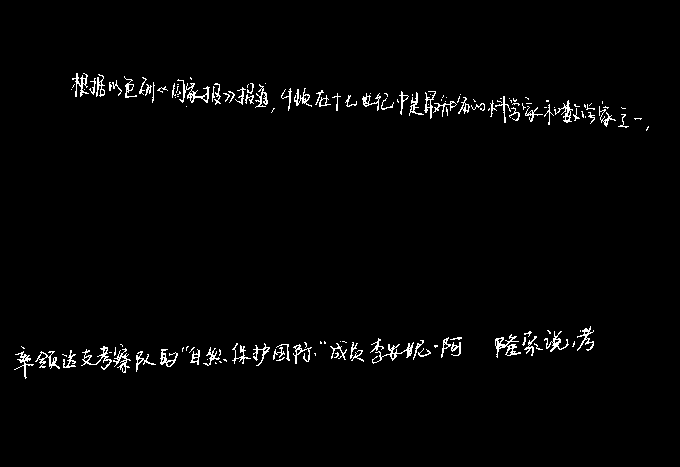 根据以色列《国家报》报道，牛顿在十七世纪中是最知名的科学家和数学家之一，
率领这支考察队的“自然保护国际”成员李安妮·阿 隆索说，考